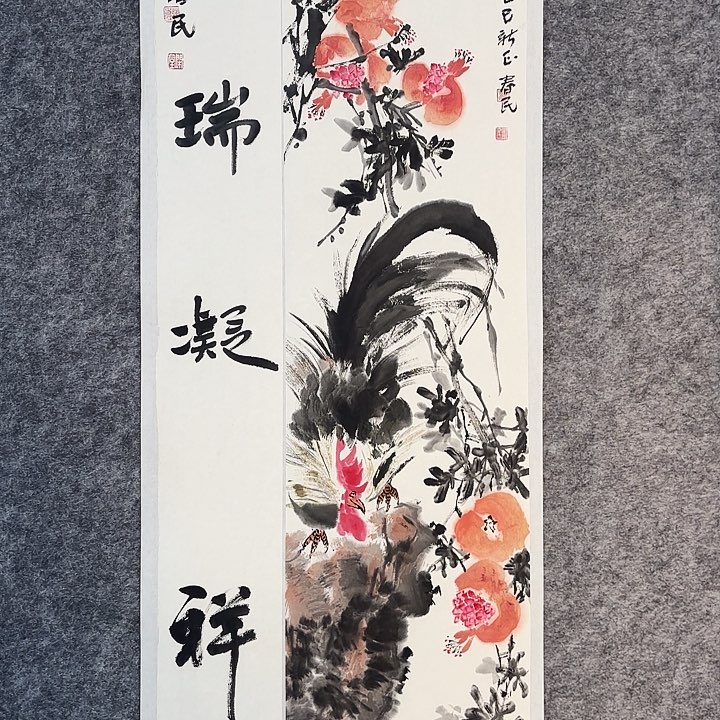 巳新正
春民
瑞凝祥
民